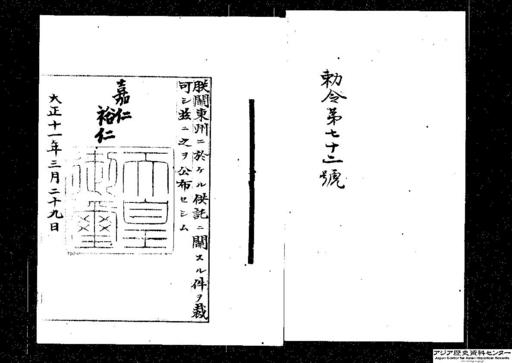 勅令第七十二號
朕關東州ニ於ケル供託ニ關スル件ヲ裁
可シ茲ニ之ヲ公布セシム
嘉仁
裕仁
天皇
御璽
大正十一年三月二十九日
アジア歴史資料センター
Japan Center for Asian Historical Records